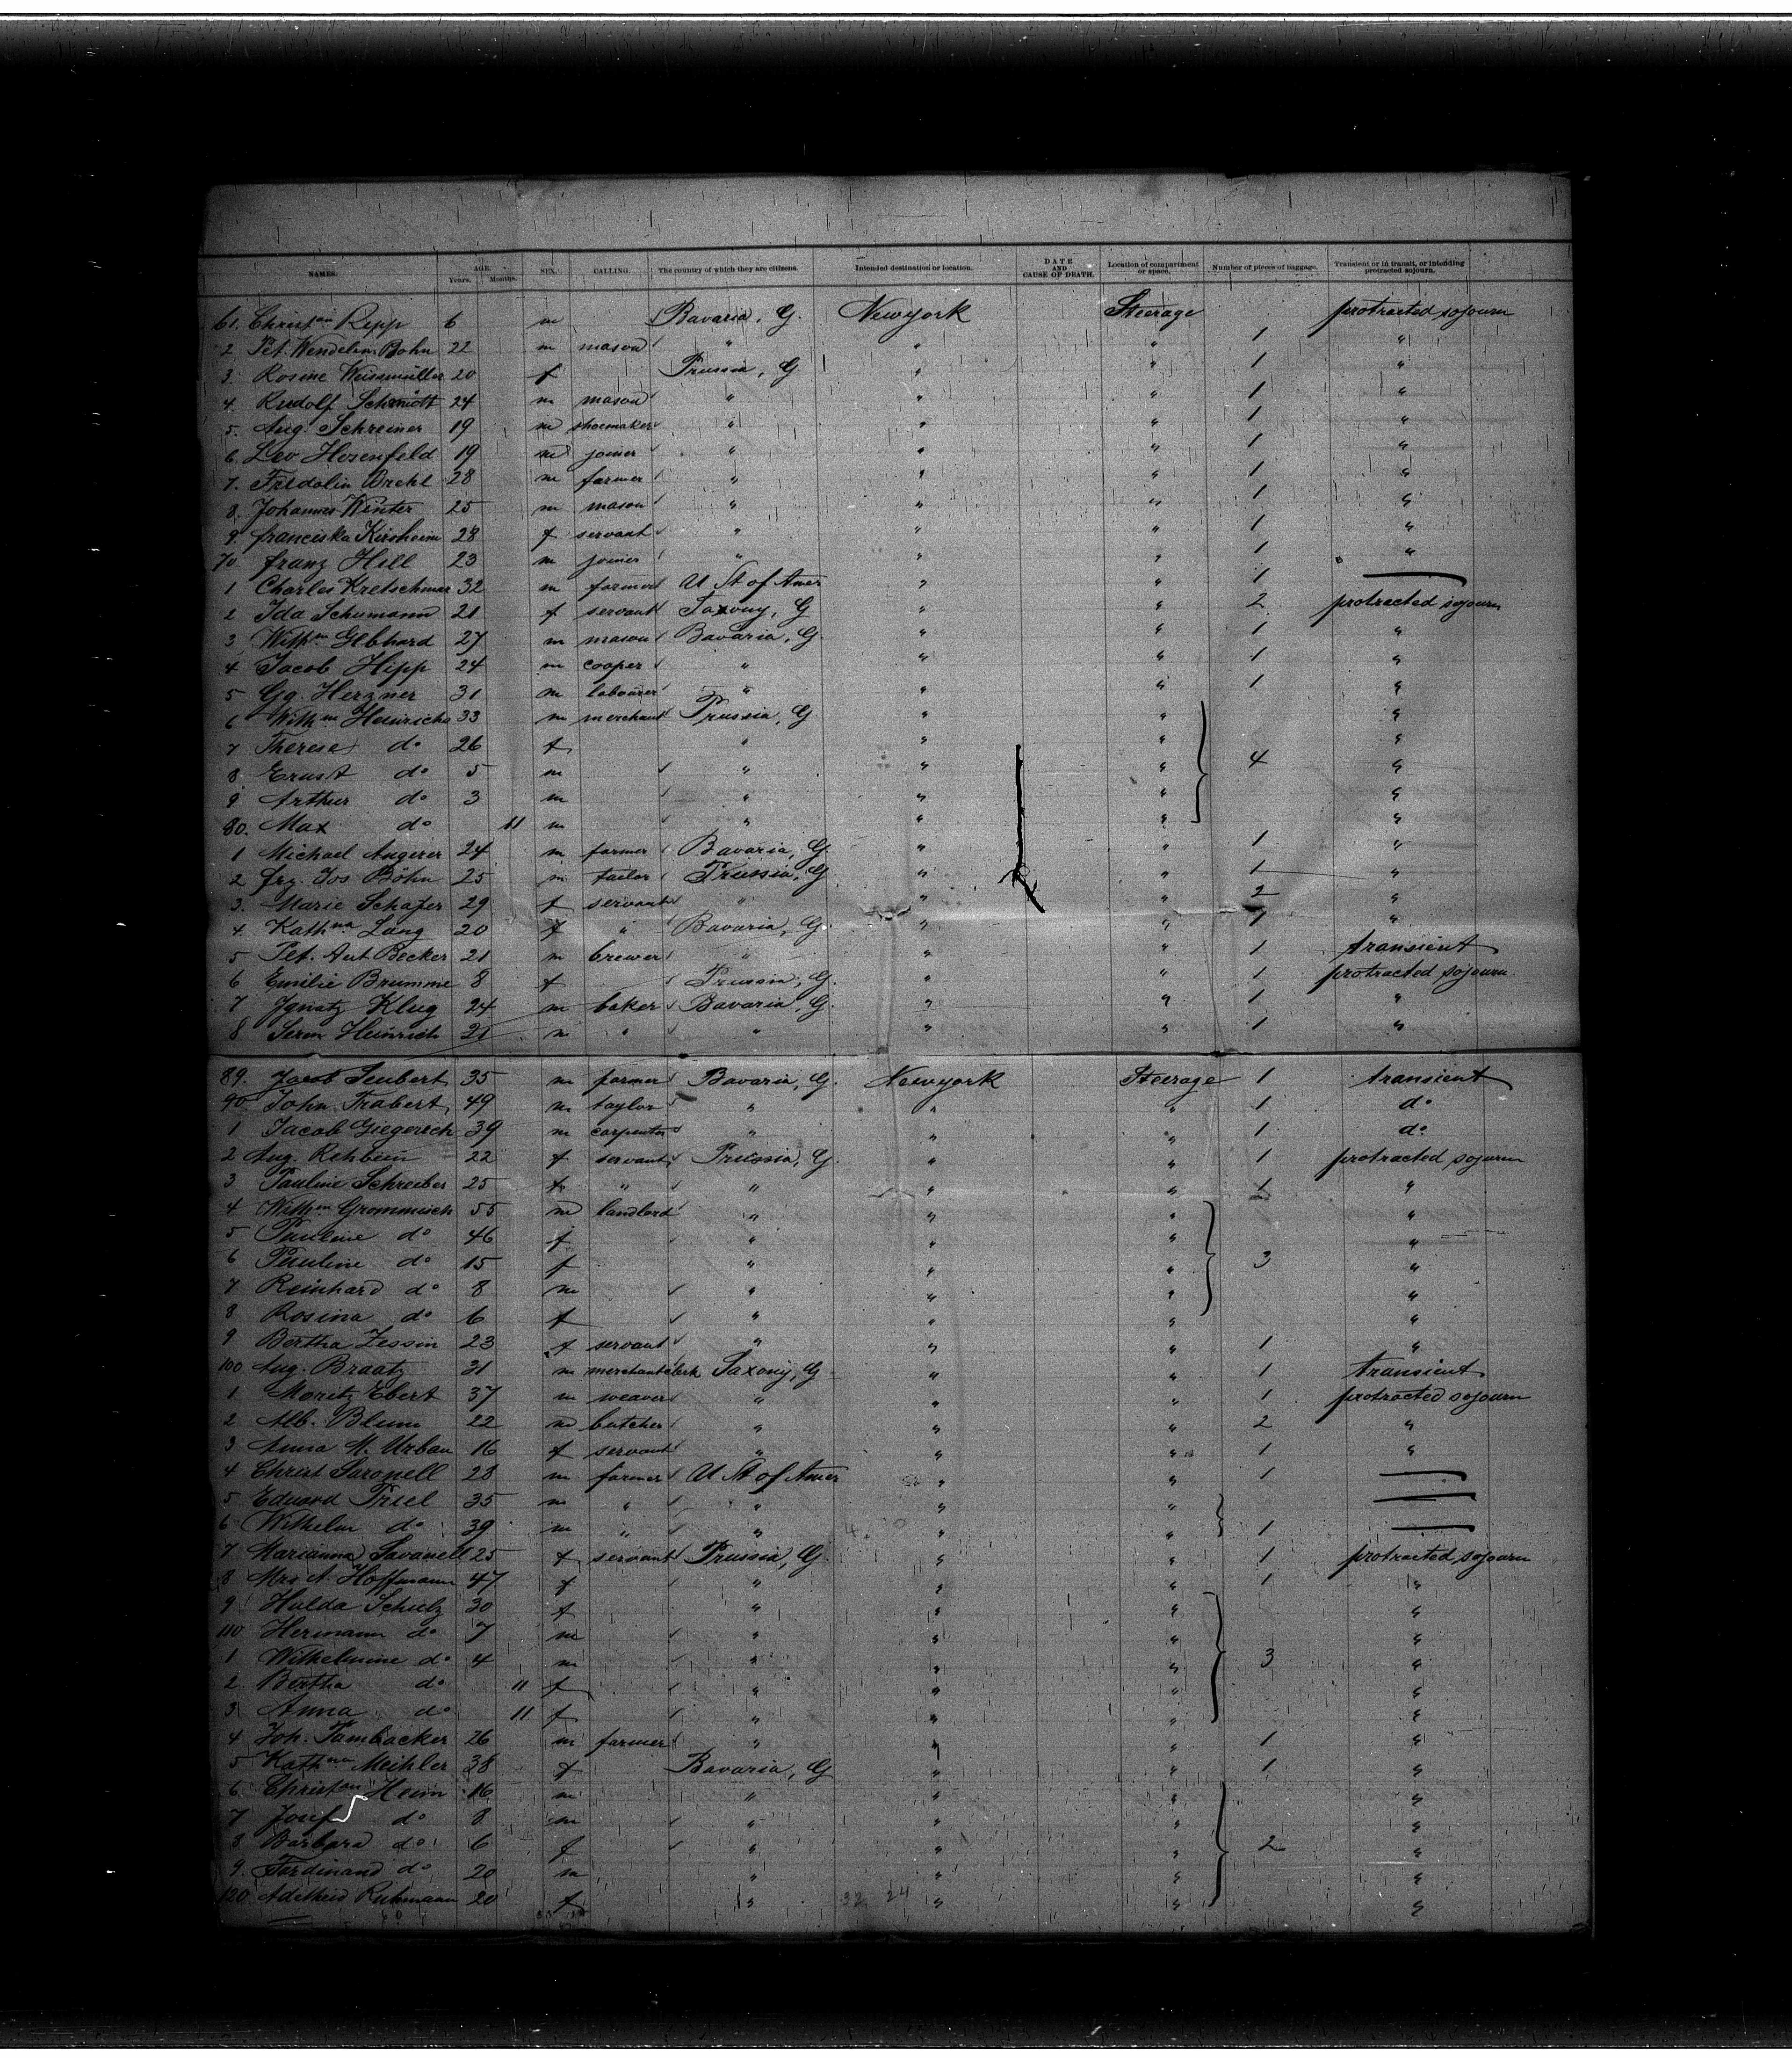 NAMES. AGE. Years. Months. SEX. CALLING. The country of which they are citizens. Intended destination or location. DATE AND CAUSE OF DEATH. Location of compartment or space. Number of pieces of baggage. Transient or in transit, or intending protracted sojourn.
61. Christian Repp 6 m Bavaria, G. Newyork Steerage protracted sojourn
2 Pet. Wendelin Bohn 22 m mason " " " 1 "
3. Rosine Weissmüller 20 f Prussia, G " " 1 "
4. Rudolf Schmidt 24 m mason " " " 1 "
5. Aug. Schreiner 19 m shoemaker " " " 1 "
6. Leo Herenfeld 19 m joiner " " " 1 "
7. Fridolin 28 m farmer " " " 1 "
8. Johannes Winter 25 m mason " " " 1 "
9. franciska Kirsheim 28 f servant " " " 1 "
70. franz Hill 23 m joiner " " " 1 "
1 Charles Kretschmar 32 m farmer U St of Amer " " 1 —
2 Ida Schumann 21 f servant Saxony, G " " 2 protracted sojourn
3 Wilhm Gebhard 27 m mason Bavaria, G. " " 1 "
4 Jacob Hipp 24 m cooper " " " 1 "
5 Gg. Herzner 31 m labourer " " " 1 "
6 Wilhm Heinrichs 33 m merchant Prussia, G " " "
7 Therese do 26 f " " " "
8 Ernst do 5 m " " " 4 "
9 Arthur do 3 m " " " "
80. Max do 11 m " " " "
1 Michael Angerer 24 m farmer Bavaria, G. " " 1 "
2 frz. Jos Böhn 25 m tailor Prussia, G " " 1 "
3. Marie Schafer 29 f servant " " " 2 "
4 Kathna Lang 20 f " Bavaria, G. " " 1 "
5 Pet. Ant Becker 21 m brewer " " " 1 transient
6 Emilie Brumme 8 f Prussia, G. " " 1 protracted sojourn
7 Ignatz Klug 24 m baker Bavaria, G. " " 1 "
8 Heinrich 21 m " " " " 1 "
89. Jacob Seubert 35 m farmer Bavaria, G. Newyork Steerage 1 transient
90 John Trabert 49 m taylor " " " 1 do
1 Jacob Giegerich 39 m carpenter " " " 1 do
2 Aug. Rehbein 22 f servant Prussia, G. " " 1 protracted sojourn
3 Pauline Schreiber 25 f " " " " 1 "
4 Wilhm Grommisch 55 m landlord " " " "
5 Pauline do 46 f " " " "
6 Pauline do 15 f " " " 3 "
7 Reinhard do 8 m " " " "
8 Rosina do 6 f " " " "
9 Bertha Zessin 23 f servant " " " 1 "
100 Aug. Braatz 31 m merchant clerk Saxony, G " " 1 transient
1 Moritz Ebert 37 m weaver " " " 1 protracted sojourn
2 Alb. Blum 22 m butcher " " " 2 "
3 Anna M. Urban 16 f servant " " " 1 "
4 Christ Saronell 28 m farmer U St of Amer " " 1 —
5 Eduard Priel 35 m " " " " —
6 Wilhelm do 39 m " " " " 1 —
7 Marianna Savanell 25 f servant Prussia, G. " " 1 protracted sojourn
8 Mrs A. Hoffmann 47 f " " " 1 "
9 Hulda Schulz 30 f " " " "
110 Hermann do 7 m " " " "
1 Wilhelmine do 4 m " " " 3 "
2 Bertha do 11 f " " " "
3 Anna do 11 f " " " "
4 Joh. Tambacker 26 m farmer " " " 1 "
5 Kathna Meihler 38 f Bavaria, G " " 1 "
6 Christian Heim 16 m " " " "
7 Josef do 8 m " " " "
8 Barbara do 6 f " " " 2 "
9. Ferdinand do 20 m " " " "
120 Adelheid Ruhmann 20 f " " " "